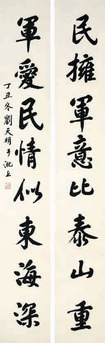 民擁軍意比泰山重
軍愛民情似東海深
丁丑冬劉天明於沈上